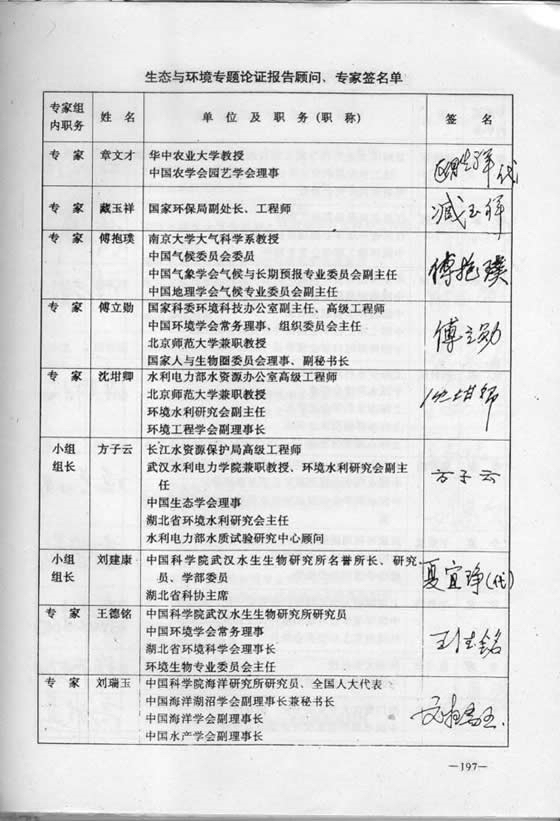 生态与环境专题论证报告顾问、专家签名单
专家组
内职务
姓 名
单 位 及 职 务（职 称）
签 名
专 家
章文才
华中农业大学教授
中国农学会园艺学会理事
代
专 家
臧玉祥
国家环保局副处长、工程师
臧玉祥
专 家
傅抱璞
南京大学大气科学系教授
中国气候委员会委员
中国气象学会气候与长期预报专业委员会副主任
中国地理学会气候专业委员会副主任
傅抱璞
专 家
傅立勋
国家科委环境科技办公室副主任、高级工程师
中国环境学会常务理事、组织委员会主任
北京师范大学兼职教授
国家人与生物圈委员会理事、副秘书长
傅立勋
专 家
沈坩卿
水利电力部水资源办公室高级工程师
北京师范大学兼职教授
环境水利研究会副主任
环境工程学会副理事长
小组
组长
方子云
长江水资源保护局高级工程师
武汉水利电力学院兼职教授、环境水利研究会副主
任
中国生态学会理事
湖北省环境水利研究会主任
水利电力部水质试验研究中心顾问
方子云
小组
组长
刘建康
中国科学院武汉水生生物研究所名誉所长、研究
员、学部委员
湖北省科协主席
夏宜琤（代）
专 家
王德铭
中国科学院武汉水生生物研究所研究员
中国环境学会常务理事
湖北省环境科学学会理事长
环境生物专业委员会主任
王德铭
专 家
刘瑞玉
中国科学院海洋研究所研究员、全国人大代表
中国海洋湖沼学会副理事长兼秘书长
中国海洋学会副理事长
中国水产学会副理事长
刘瑞玉
—197—